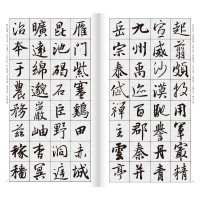 起翦頗牧用軍最精
宣威沙漠馳譽丹青
九州禹跡百郡秦并
岳宗泰岱禪主雲亭
雁門紫塞鷄田赤城
昆池碣石巨野洞庭
曠遠綿邈巖岫杳冥
治本于農務茲稼穡